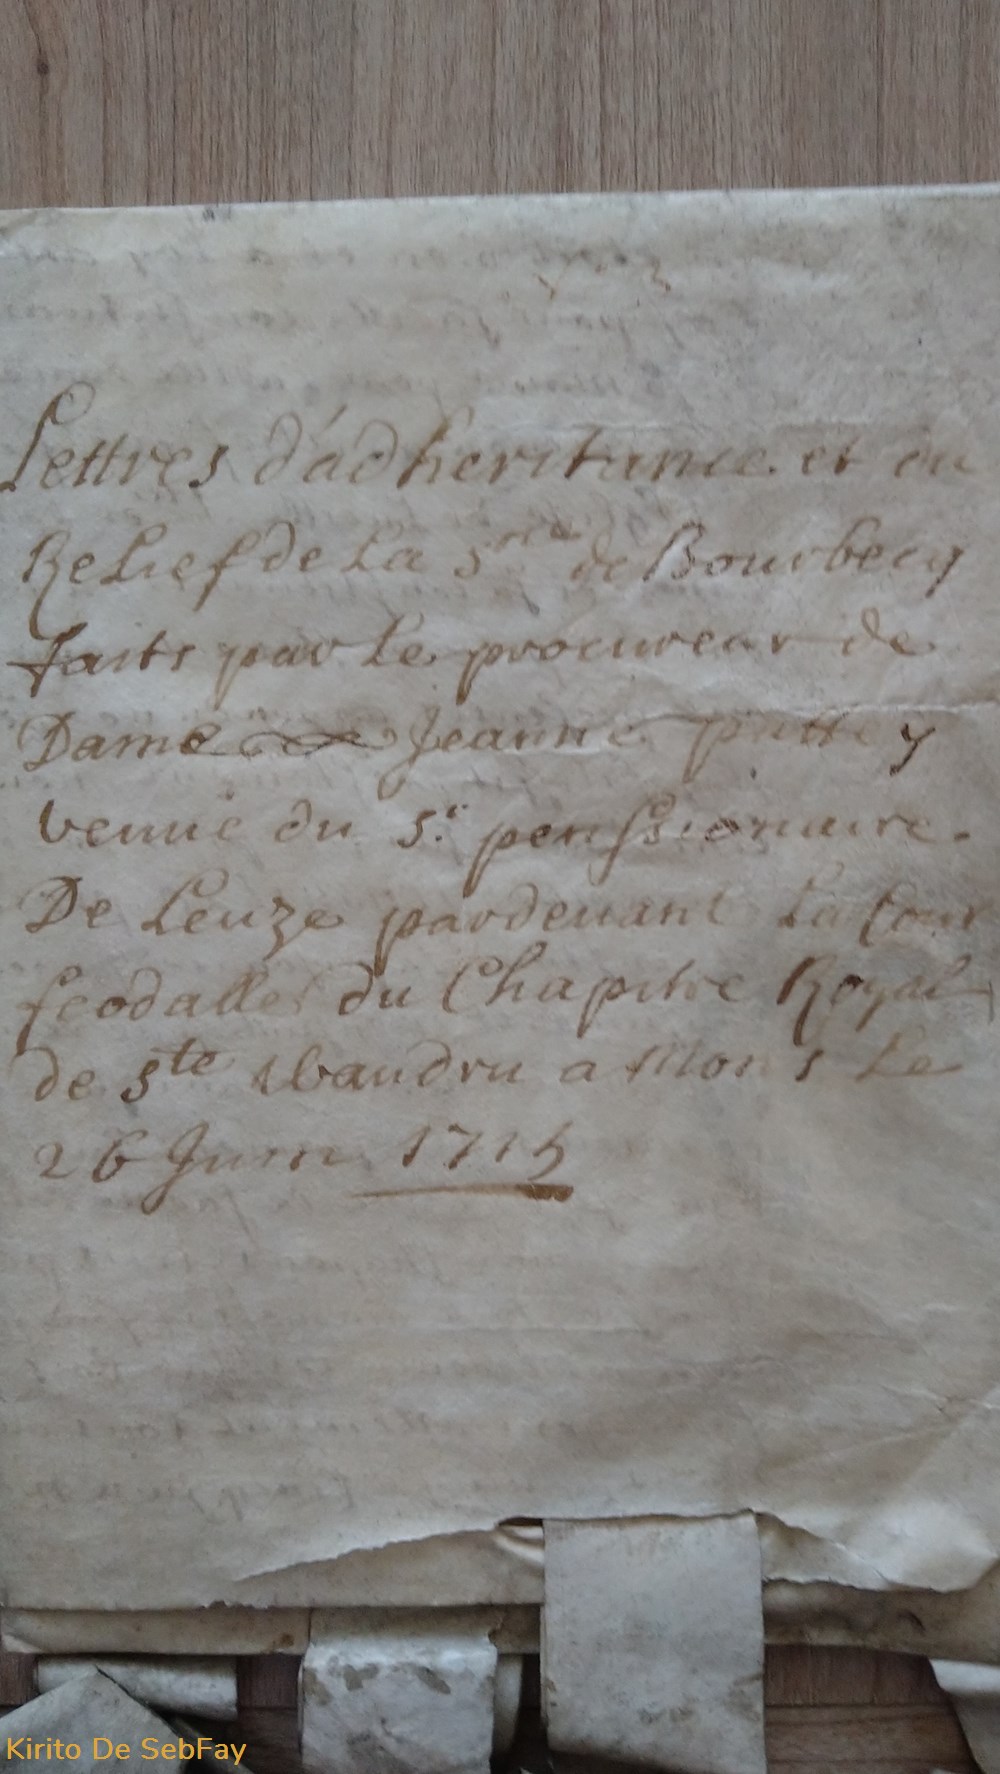 Lettres d'adheritance et du
Relief de La Srie de Bourbecq
faits par Le procureur de
Dame Jeanne puttey
venue du Sr. penssionaire.
De Leuze pardeuant La Cour
feodalle du Chapitre Royal
de Ste Waudru a Mons Le
26 Juin 1715
Kirito De SebFay